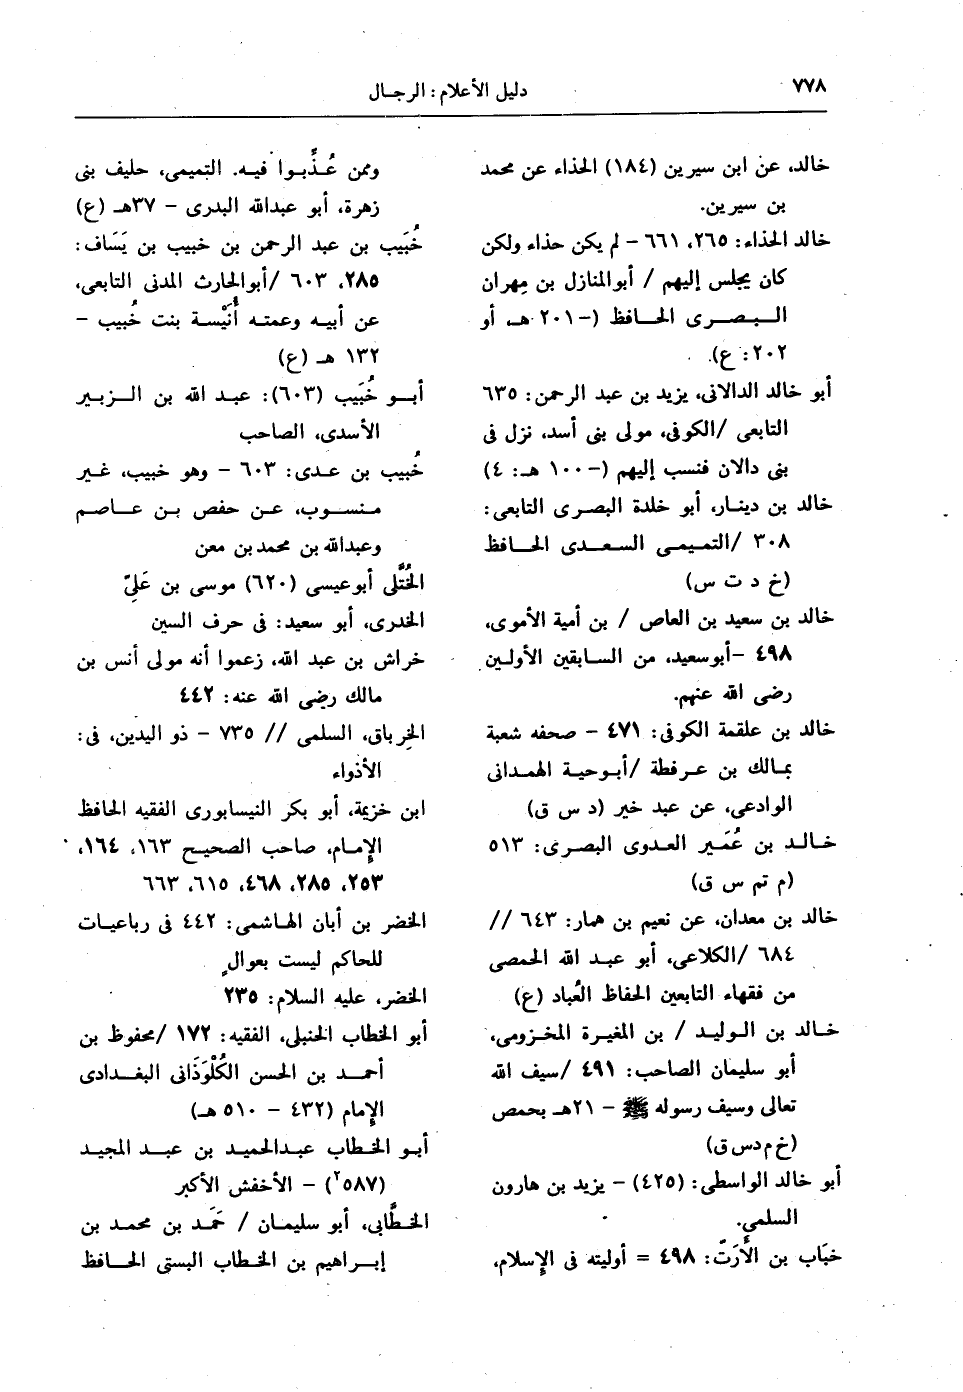 ٧٧٨
دليل الأعلام : الرجـال
خالد، عن ابن سيرين (١٨٤) الحذاء عن محمد
بن سيرين.
خالد الحذاء: ٢٦٥، ٦٦١ - لم يكن حذاء ولكن
كان يجلس إليهم / أبوالمنازل بن مِهران
البـصـرى الحـافظ (-٢٠١ هـ، أو
٢٠٢: ع).
أبو خالد الدالانى، يزيد بن عبد الرحمن: ٦٣٥
التابعى /الكوفى، مولى بنى أسد، نزل فى
بنى دالان فنسب إليهم (-١٠٠ هـ: ٤)
خالد بن دينـار، أبو خلدة البصرى التابعى:
٣٠٨ /التميـمى السـعـدى الحـافظ
(خ د ت س)
خالد بن سعيد بن العاص / بن أمية الأموى،
٤٩٨ -أبوسعيد، من السـابقين الأولـين
رضى الله عنهم.
خالد بن علقمة الكوفى: ٤٧١ - صحفه شعبة
بمـالك بن عـرفطة /أبـوحيـة الهمـدانى
الوادعى، عن عبد خير (د س ق)
خـالـد بن عُمَـير العـدوى البصـرى: ٥١٣
(م تم س ق)
خالد بن معدان، عن نعيم بن همار: ٦٤٣ //
٦٨٤ /الكلاعى، أبو عبـد الله الحمصى
من فقهاء التابعين الحفاظ العُباد (ع)
خـالد بن الـوليـد / بن المغيرة المخـزومى،
أبو سليمان الصاحب: ٤٩١ /سيف الله
تعالى وسيف رسوله ﷺ - ٢١هـ بحمص
(خ م د س ق)
أبو خالد الواسطى: (٤٢٥) - يزيد بن هارون
السلمى.
خبَاب بن الأَرَتّ: ٤٩٨ = أوليته فى الإسلام،
وممن عُذِّبـوا فيـه. التميمى، حليف بنى
زهرة، أبو عبدالله البدرى - ٣٧هـ (ع)
خُبَيب بن عبد الرحمن بن خبيب بن يَسَاف:
٢٨٥، ٦٠٣ /أبوالحارث المدنى التابعى،
عن أبيـه وعمتـه أُنَيْسـة بنت خُبيب -
١٣٢ هـ (ع)
أبــو خُبَيب (٦٠٣): عبـد الله بن الـزبـير
الأسدى، الصاحب
خُبيب بن عـدى: ٦٠٣ - وهو خبيب، غـير
منسـوب، عـن حفص بـن عـاصـم
وعبدالله بن محمد بن معن
الخُتَّلى أبوعيسى (٦٢٠) موسى بن عَليّ
الخدرى، أبو سعيد: فى حرف السين
خراش بن عبد الله، زعموا أنه مولى أنس بن
مالك رضى الله عنه: ٤٤٢
الخِرباق، السلمى // ٧٣٥ - ذو اليدين، فى:
الأذواء
ابن خزيمة، أبو بكر النيسابورى الفقيه الحافظ
الإمـام، صاحب الصحيـح ١٦٣، ١٦٤،
٢٥٣، ٢٨٥، ٤٦٨، ٦١٥، ٦٦٣
الخضر بن أبان الهـاشمى: ٤٤٢ فى رباعيـات
للحاكم ليست بعوالٍ
الخضر، عليه السلام: ٢٣٥
أبو الخطاب الحنبلى، الفقيه: ١٧٢ /محفوظ بن
أحمـد بن الحسن الكُلْوَذَانى البغـدادى
الإمام (٤٣٢ - ٥١٠ هـ)
أبـو الخـطاب عبـدالحميـد بن عبـد المجيد
(٥٨٧٢) - الأخفش الأكبر
الخطَّابى، أبو سليمـان / حَمَـد بن محمـد بن
إبـراهيم بن الخـطاب البستى الحـافظ